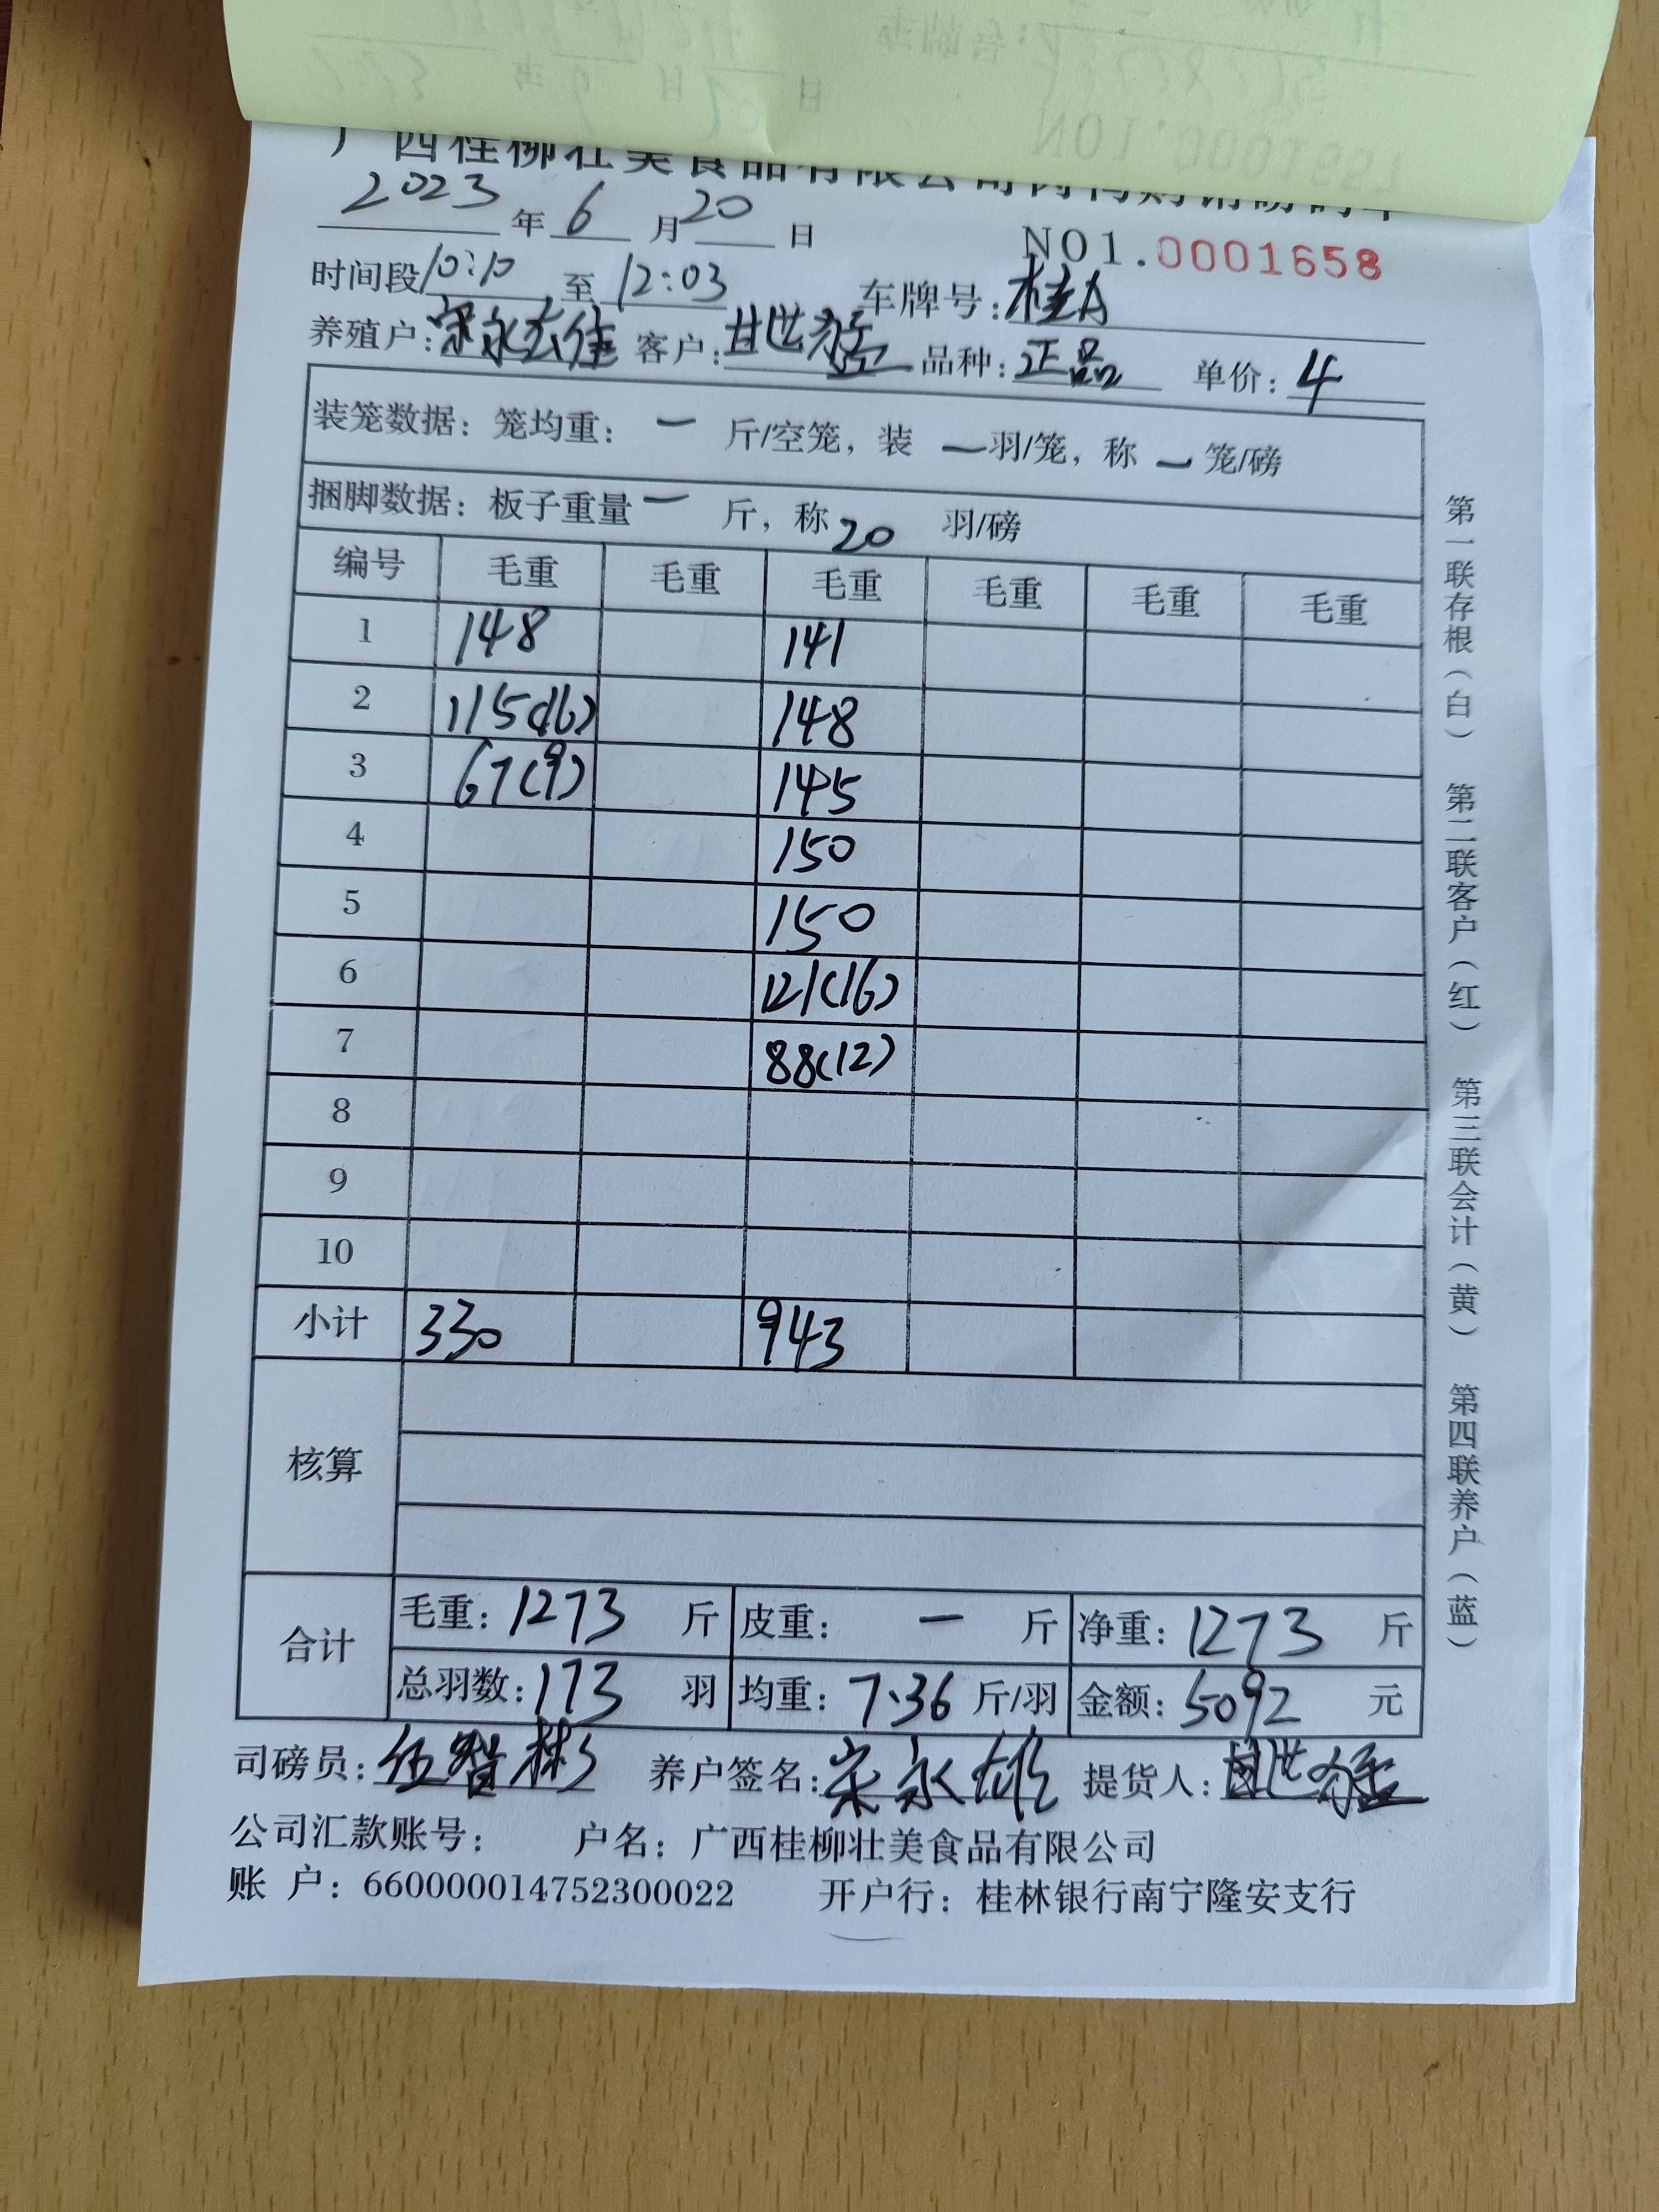 广西桂柳壮美食品有限公司肉鸭购销磅码单
2023 年 6 月 20 日
NO1.0001658
时间段 10:10 至 12:03 车牌号: 桂A
养殖户: 宋永雄 客户: 甘世猛 品种: 正品 单价: 4
装笼数据: 笼均重: 一 斤/空笼, 装 一 羽/笼, 称 一 笼/磅
捆脚数据: 板子重量 一 斤, 称 20 羽/磅
编号 毛重 毛重 毛重 毛重 毛重 毛重
1 148 141
2 115(16) 148
3 67(9) 145
4 150
5 150
6 121(16)
7 88(12)
8
9
10
小计 330 943
核算
合计 毛重: 1273 斤 皮重: 一 斤 净重: 1273 斤
总羽数: 173 羽 均重: 7.36 斤/羽 金额: 5092 元
司磅员: 伍智彬 养户签名: 宋永雄 提货人: 甘世猛
公司汇款账号: 户名: 广西桂柳壮美食品有限公司
账 户: 660000014752300022 开户行: 桂林银行南宁隆安支行
第一联存根(白) 第二联客户(红) 第三联会计(黄) 第四联养户(蓝)